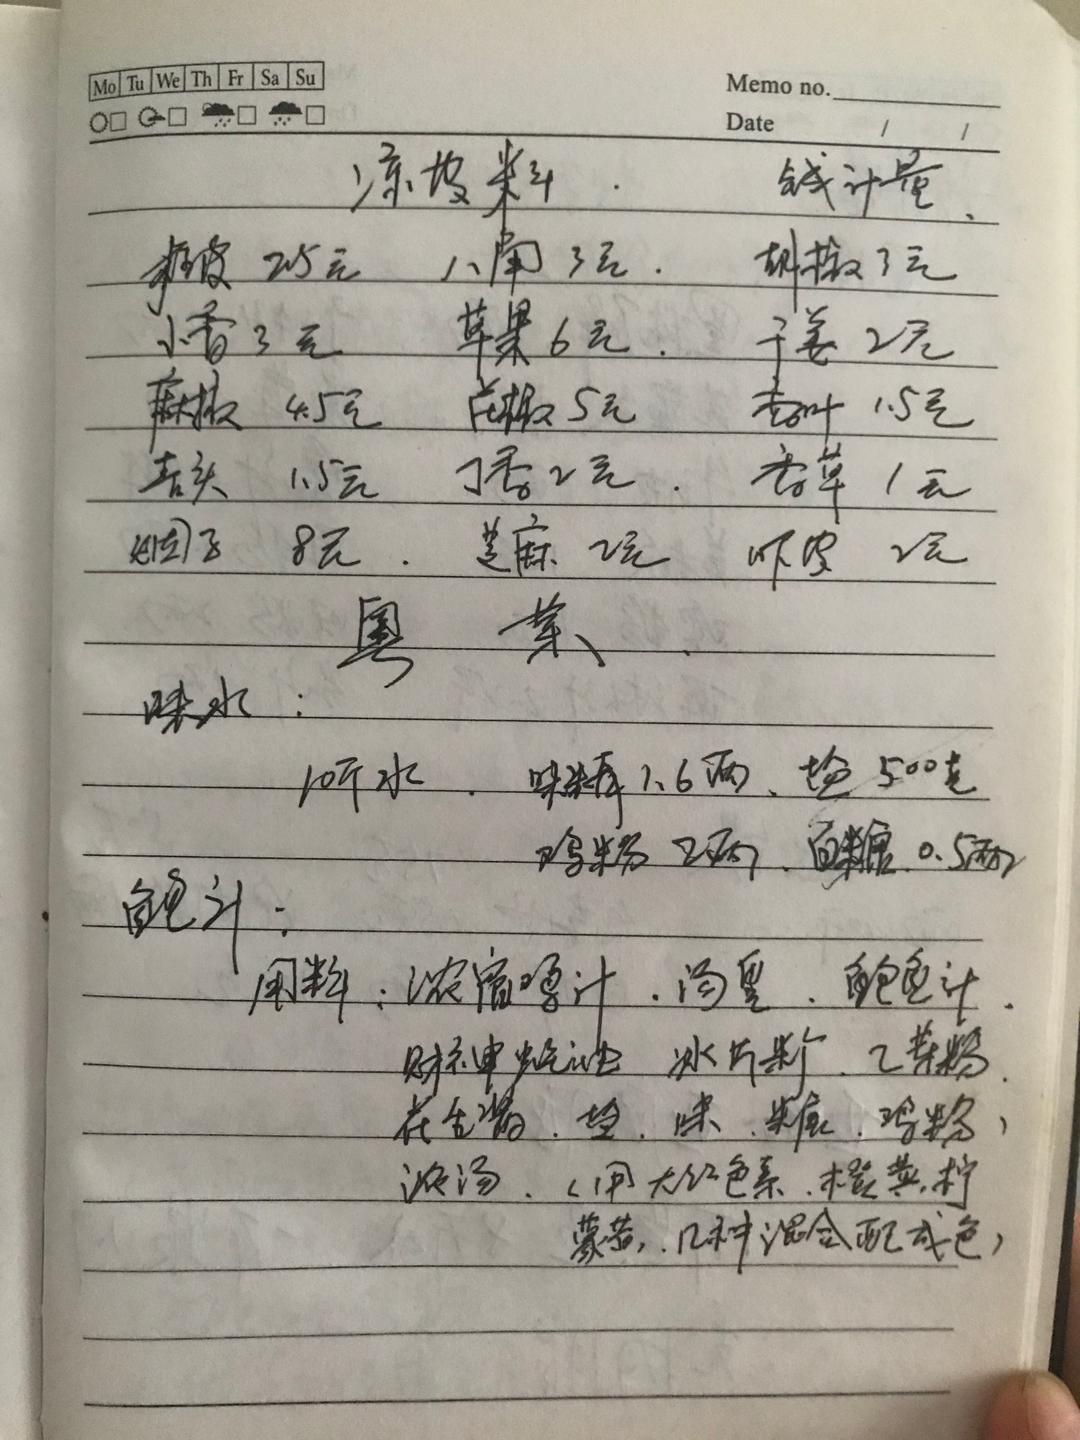 Mo Tu We Th Fr Sa Su
Memo no.
Date / /
凉皮料 . 钱计量、
桂皮 25元 八角 3元 . 胡椒 3元
小香 3元 草果 6元 . 干姜 2元
麻椒 4.5元 花椒 5元 香叶 1.5元
1.5元 丁香 2元 . 香草 1元
8元 . 芝麻 2元 虾皮 2元
粤菜
味水:
10斤水 . 味精 1.6两、盐 500克
鸡粉 2两、白糖 0.5两
鲍汁:
用料: 浓缩鸡汁 . 汤皇 . 鲍鱼汁 .
财神蚝油 冰片粉 . 粉 .
花生酱 . 盐 . 味 . 糖 . 鸡粉,
浓汤 . (用大红色素 . 橙黄 . 柠
檬黄, . 几种混合配成色)